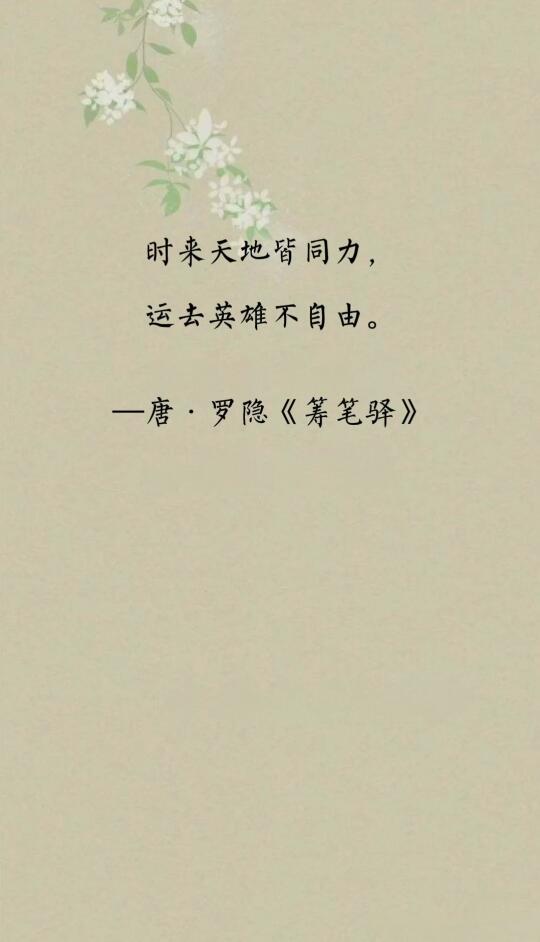 时来天地皆同力，
运去英雄不自由。
—唐·罗隐《筹笔驿》